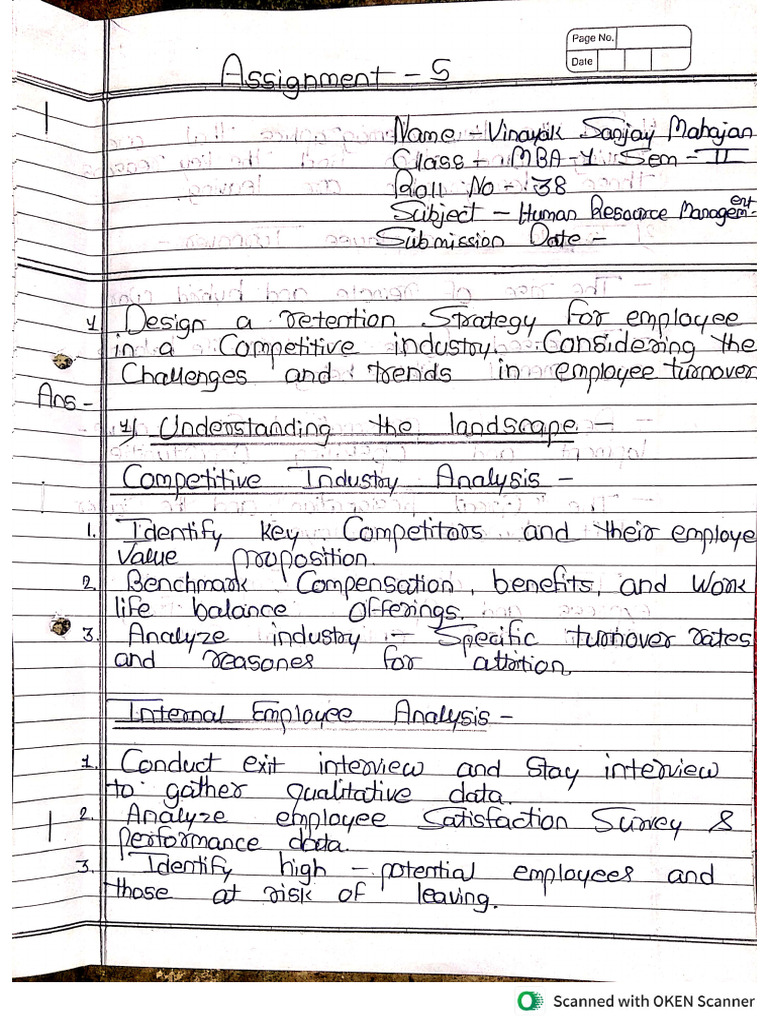 Page No.
Date
Assignment - 5
Name - Vinayak Sanjay Mahajan
Class - MBA-1 Sem - II
Roll No - 38
Subject - Human Resource Management
Submission Date -
1) Design a retention Strategy for employee
in a Competitive industry. Considering the
Challenges and trends in employee turnover
Ans -
1) Understanding the landscape -
Competitive Industry Analysis -
1. Identify key Competitors and their employe
value proposition.
2. Benchmark Compensation, benefits, and Work
life balance offerings.
3. Analyze industry - Specific turnover rates
and reasones for attrition.
Internal Employee Analysis -
1. Conduct exit interview and stay interview
to gather qualitative data.
2. Analyze employee Satisfaction Survey &
performance data.
3. Identify high - potential employees and
those at risk of leaving.
Scanned with OKEN Scanner